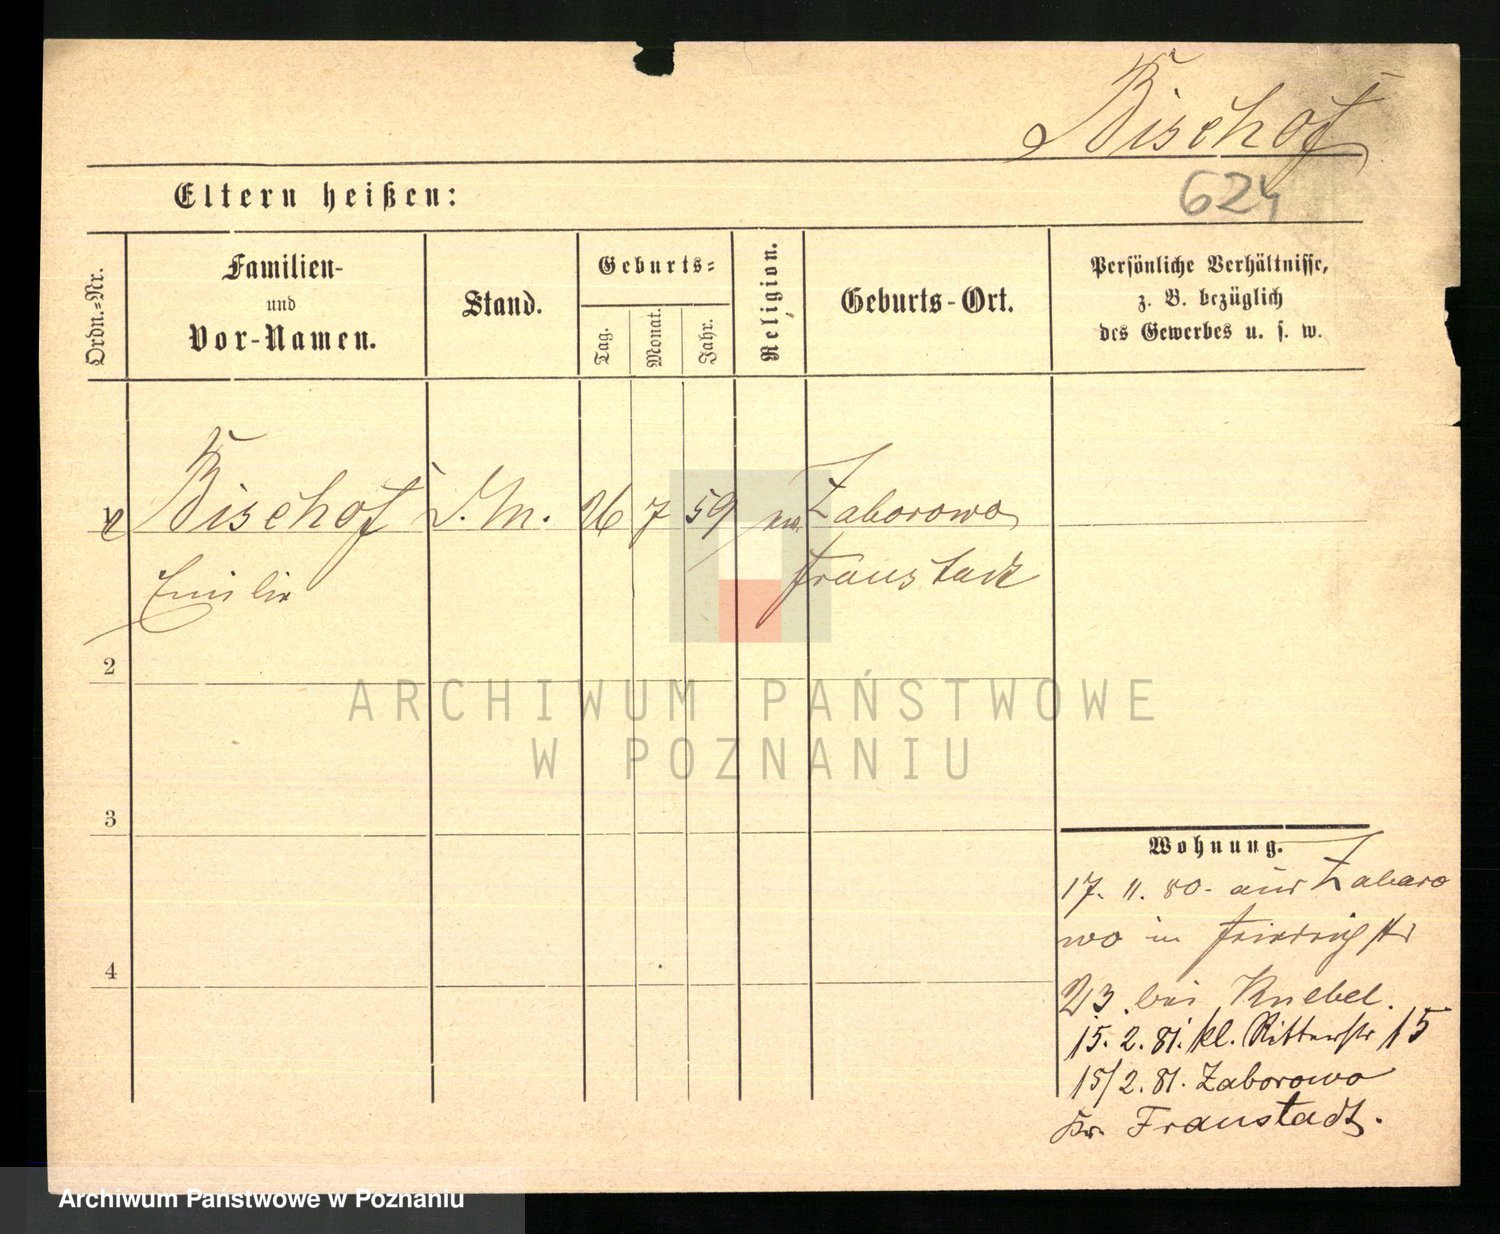 Bischof
Eltern heißen:
624
Ordn.-Nr.
Familien-
und
Vor-Namen.
Stand.
Geburts-
Tag.
Monat.
Jahr.
Religion.
Geburts-Ort.
Persönliche Verhältnisse,
z. B. bezüglich
des Gewerbes u. s. w.
Bischof D.M. 26 7 59 ev Zaborowo
Emilie Fraustadt
2
3
4
ARCHIWUM PAŃSTWOWE
W POZNANIU
Wohnung.
17. 11. 80. aus Zaboro
wo in Friedrichstr
23 bei Knebel.
15. 2. 81. kl. Ritterstr 15
15/2. 81. Zaborowo
Kr. Fraustadt.
Archiwum Państwowe w Poznaniu